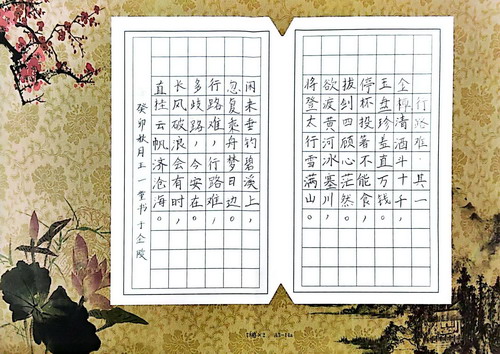 行路难·其一
金樽清酒斗十千，
玉盘珍羞直万钱。
停杯投箸不能食，
拔剑四顾心茫然。
欲渡黄河冰塞川，
将登太行雪满山。
闲来垂钓碧溪上，
忽复乘舟梦日边。
行路难，行路难，
多歧路，今安在。
长风破浪会有时，
直挂云帆济沧海。
癸卯秋月王一堂书于金陵